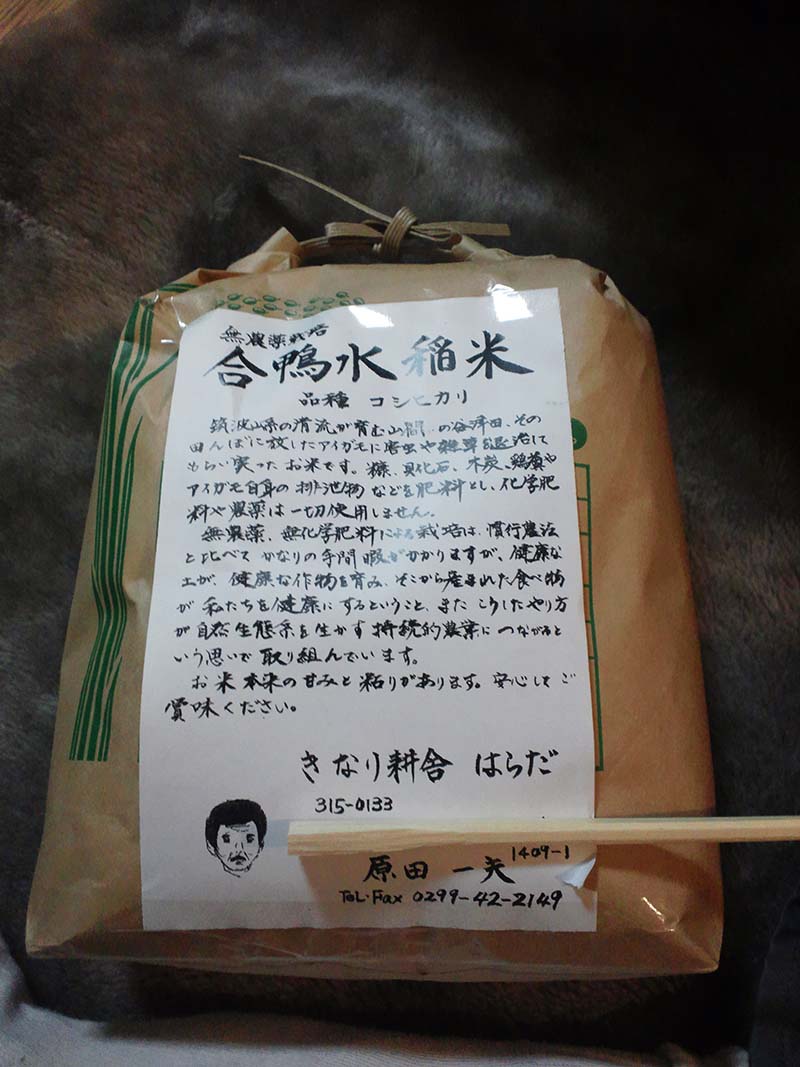 無農薬栽培
合鴨水稲米
品種 コシヒカリ
筑波山系の清流が育む山間の谷津田、その
田んぼに放したアイガモに害虫や雑草を退治して
もらい実ったお米です。糠、貝化石、木炭、鶏糞や
アイガモ自身の排泄物などを肥料とし、化学肥
料や農薬は一切使用しません。
無農薬、無化学肥料による栽培は、慣行農法
と比べてかなりの手間暇がかかりますが、健康な
土が、健康な作物を育み、そこから産まれた食べ物
が私たちを健康にするということ、またこうしたやり方
が自然生態系を生かす持続的農業につながると
いう思いで取り組んでいます。
お米本来の甘みと粘りがあります。安心してご
賞味ください。
きなり耕舎 はらだ
315-0133
1409-1
原田 一矢
TeL・Fax 0299-42-2149